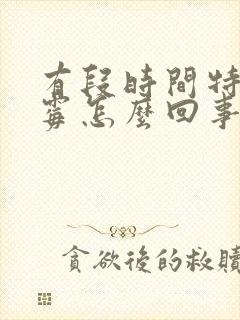 有段時間特
霉怎麼回事
貪欲後的救贖